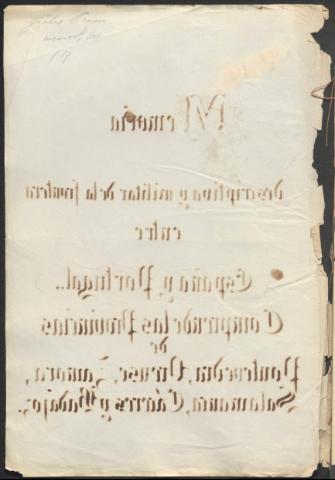 Memoria
descriptiva y militar de la frontera
entre
España y Portugal.
Comprende las Provincias
de
Pontevedra, Orense, Zamora,
Salamanca, Cáceres y Badajoz.